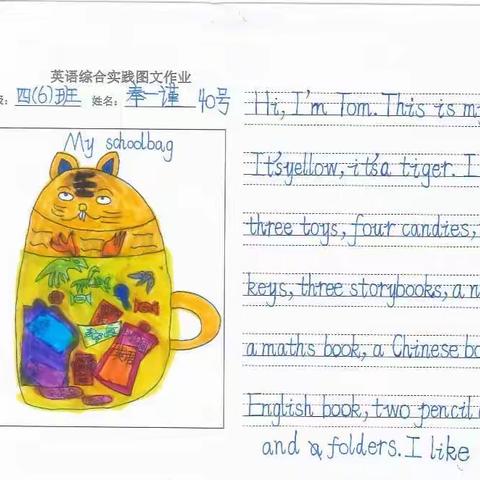 英语综合实践图文作业
四(6)班 姓名: 奉一谨 40号
My schoolbag
英语
Hi, I'm Tom. This is my
It's yellow, it's a tiger. I
three toys, four candies,
keys, three storybooks, a n
a maths book, a Chinese bo
English book, two pencil
and a folders. I like